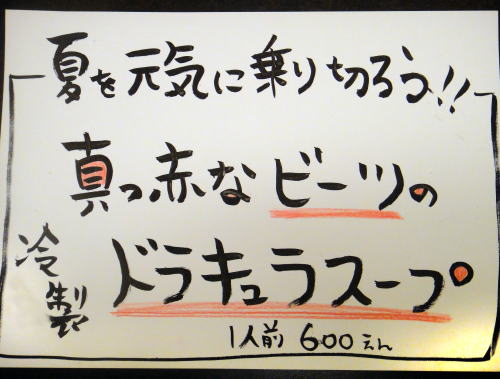 夏を元気に乗り切ろう!!
真っ赤なビーツの
冷製
ドラキュラスープ
1人前 600えん